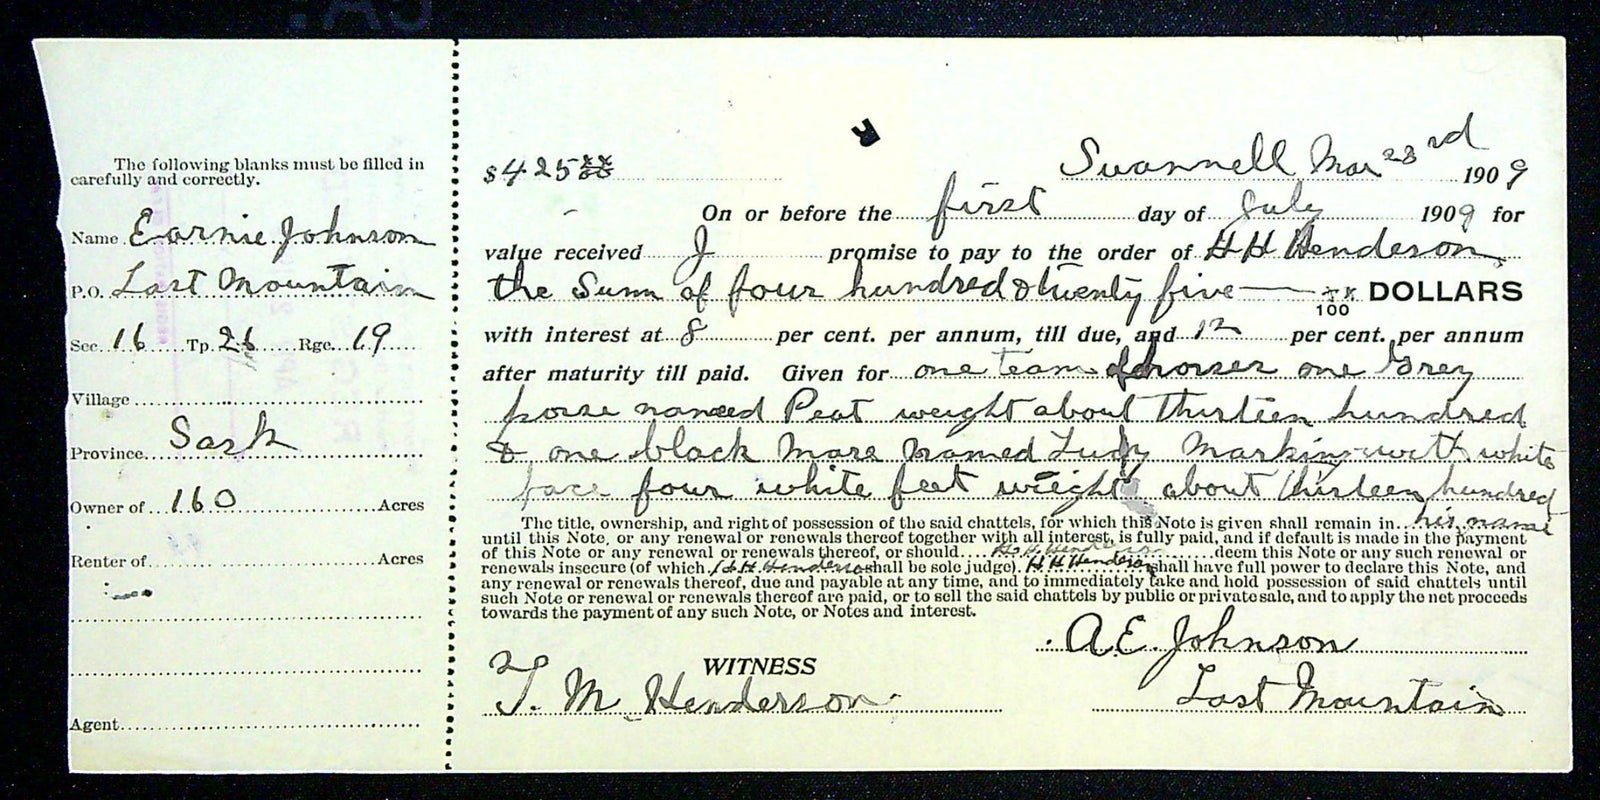 The following blanks must be filled in
carefully and correctly.
Name Earnie Johnson
P.O. Last Mountain
Sec. 16 Tp. 26 Rge. 19
Village
Province Sask
Owner of 160 Acres
Renter of Acres
Agent
$425 xx
Swannell Mar 23rd 1909
On or before the first day of July 1909 for
value received I promise to pay to the order of H H Henderson
the Sum of four hundred & twenty five xx/100 DOLLARS
with interest at 8 per cent. per annum, till due, and 12 per cent. per annum
after maturity till paid. Given for one team of horses one Grey
horse named Peat weight about thirteen hundred
& one black mare named Judy Marking with white
face four white feet weight about thirteen hundred
The title, ownership, and right of possession of the said chattels, for which this Note is given shall remain in his name
until this Note, or any renewal or renewals thereof together with all interest, is fully paid, and if default is made in the payment
of this Note or any renewal or renewals thereof, or should H. H. Henderson deem this Note or any such renewal or
renewals insecure (of which H. H. Henderson shall be sole judge). H H Henderson shall have full power to declare this Note, and
any renewal or renewals thereof, due and payable at any time, and to immediately take and hold possession of said chattels until
such Note or renewal or renewals thereof are paid, or to sell the said chattels by public or private sale, and to apply the net proceeds
towards the payment of any such Note, or Notes and interest.
A.E. Johnson
WITNESS
T. M. Henderson
Last Mountain